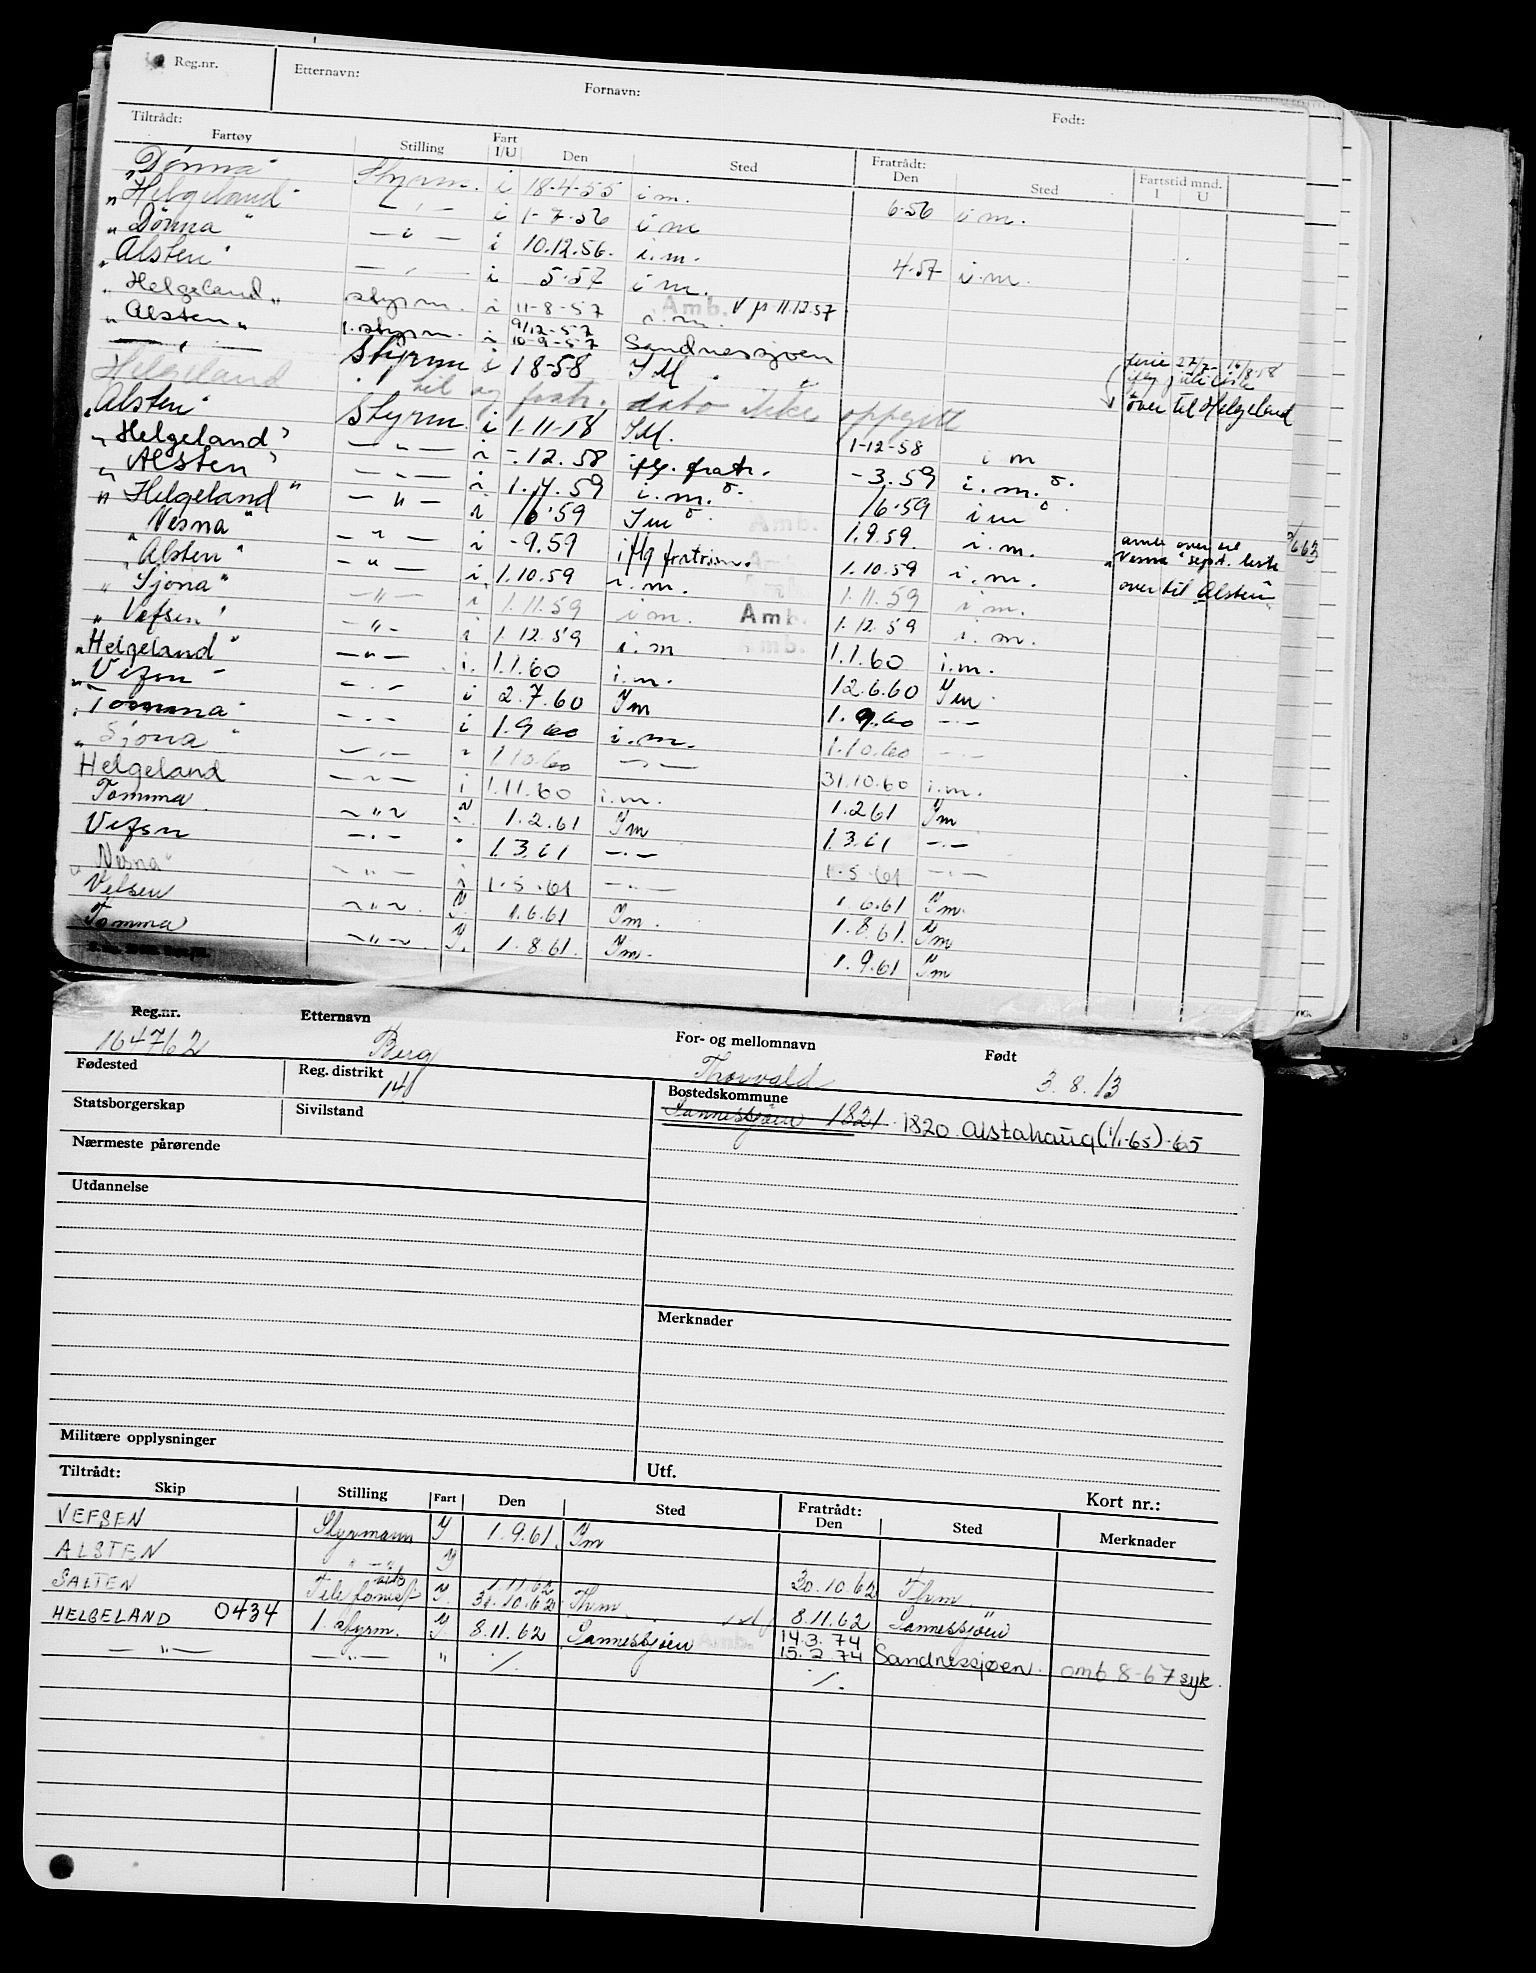 Reg.nr. Etternavn: Fornavn: Født:
Tiltrådt: Fratrådt: Fartstid mnd.
Fartøy Stilling Fart I/U Den Sted Den Sted I U
"Dønna" Styrm. i 18-4-55 i m. 6-56 i m.
"Helgeland" — " — i 1-7-56 i m
"Dønna" — " — i 10.12.56. i.m. 4-57 i.m
"Alsten" — " — i 5-57 i m.
"Helgeland" styrm. i 11-8-57 i.m. Amb. 11.12.57
"Alsten" 1. styrm. i 9/12-57
— " — 10-9-57 Sandnessjøen
Styrm i 1 8-58 I M. ferie
Helgeland til og fratr. dato ikke oppgitt over til Helgeland
"Alsten" Styrm i 1.11.18 I M. 1-12-58 i m
"Helgeland" — " — i -.12.58 iflg. fratr. -3.59 i.m.
"Alsten" — " — i 1.4.59 i.m. 1/6-59 i m
"Helgeland" — " — i 1/6-59 I m Amb. 1.9.59. i.m.
"Nesna" — " — i -9.59 iflg fratrinn. 1.10.59 i.m. over til "Alsten"
"Alsten" — " — i 1.10.59 i.m. 1.11.59 i m.
"Sjona" — " — i 1.11.59 i m. Amb. 1.12.59 i.m.
"Vefsen" — " — i 1.12.59 i.m Amb. 1.1.60 i.m.
"Helgeland" — " — i. 1.1.60 i.m. 12.6.60 I m
"Vefsn — " — i 2.7.60 I m 1.9.60 — " —
"Tomma" — " — i 1.9 60 i.m. 1.10.60 — " —
"Sjona" — " — i 1.10.60 — " — 31.10.60 i.m.
Helgeland — " — i 1.11.60 i.m. 1.2 61 I m
Tomma — " — 1.2.61 I m 1.3.61 — " —
Vefsn — " — " 1.3.61 — " — 1.5.61 — " —
"Nesna" — " — i 1.5.61 — " — 1.6.61 I m.
Vefsen — " — I. 1.6.61 I m. 1.8.61. I m
Tomma — " — I. 1.8.61. I m. 1.9.61 I m
Reg.nr. Etternavn For- og mellomnavn Født
164762 Berg Thorvald 3.8.13
Fødested Reg. distrikt Bostedskommune
14 Sannessjøen 1821. 1820 Alstahaug (1/1-65)-65
Statsborgerskap Sivilstand
Nærmeste pårørende
Utdannelse
Merknader
Militære opplysninger
Utf. Kort nr.:
Tiltrådt: Fratrådt:
Skip Stilling Fart Den Sted Den Sted Merknader
VEFSEN Styrmann I 1.9.61. I m
ALSTEN " — " I 30.10.62 Thm.
SALTEN Telefonist I. 1.11.62 31.10.62 Thm. 8.11.62 Sannessjöen
HELGELAND 0434 1. styrm. I. 8.11.62 Sannessjöen Amb. 14.3.74 15.2 74 Sandnessjøen. amb 8-67 syk.
— " — — " — " ./. ./.